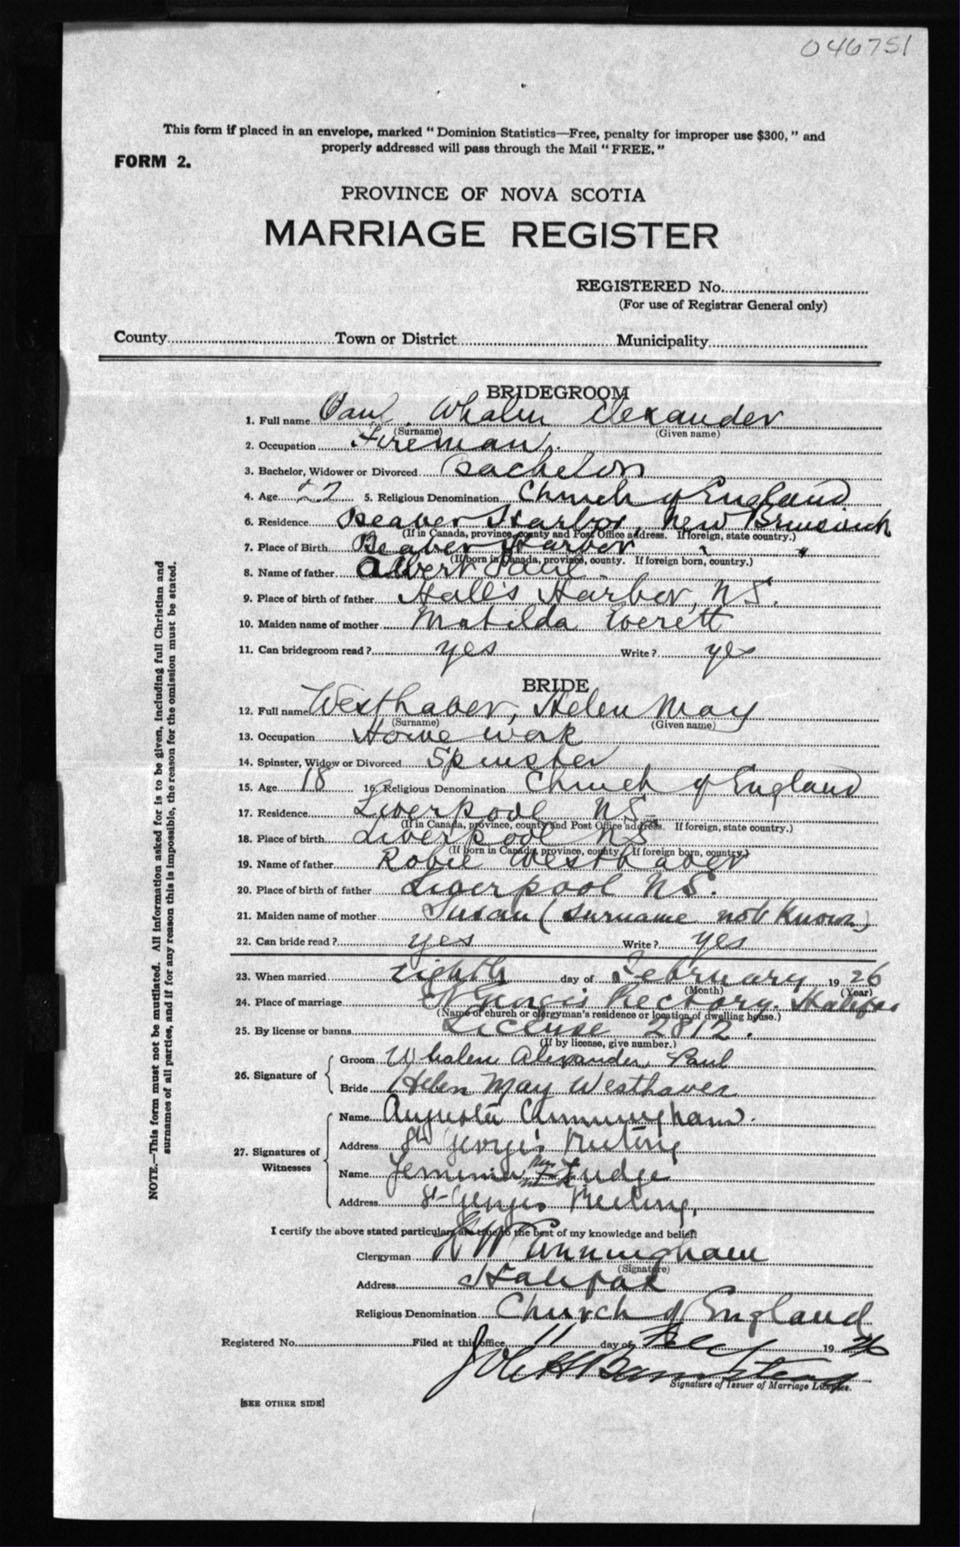 046751
This form if placed in an envelope, marked "Dominion Statistics—Free, penalty for improper use $300," and
properly addressed will pass through the Mail "FREE."
FORM 2.
PROVINCE OF NOVA SCOTIA
MARRIAGE REGISTER
REGISTERED No.
(For use of Registrar General only)
County Town or District Municipality
BRIDEGROOM
1. Full name Paul Whalen Alexander
(Surname) (Given name)
2. Occupation Fireman
3. Bachelor, Widower or Divorced Bachelor
4. Age 27 5. Religious Denomination Church of England
6. Residence Beaver Harbor, New Brunswick
(If in Canada, province, county and Post Office address. If foreign, state country.)
7. Place of Birth Beaver Harbor
(If born in Canada, province, county. If foreign born, country.)
8. Name of father Albert Paul
9. Place of birth of father Hall's Harbor, NS.
10. Maiden name of mother Matilda Everett
11. Can bridegroom read? yes Write? yes
BRIDE
12. Full name Westhaver, Helen May
(Surname) (Given name)
13. Occupation Home work
14. Spinster, Widow or Divorced Spinster
15. Age 18 16. Religious Denomination Church of England
17. Residence Liverpool NS.
(If in Canada, province, county and Post Office address. If foreign, state country.)
18. Place of birth Liverpool NS
(If born in Canada, province, county. If foreign born, country.)
19. Name of father Robie Westhaver
20. Place of birth of father Liverpool NS.
21. Maiden name of mother Susan (surname not known)
22. Can bride read? yes Write? yes
23. When married eighth day of February 1926
(Month) (Year)
24. Place of marriage St Georges Rectory. Halifax
(Name of church or clergyman's residence or location of dwelling house.)
25. By license or banns License 2812.
(If by license, give number.)
26. Signature of
Groom Whalen Alexander Paul
Bride Helen May Westhaver
27. Signatures of Witnesses
Name Augusta Cunningham.
Address St George's
Name Jemima Fudge
Address St Georges
I certify the above stated particulars are true to the best of my knowledge and belief:
Clergyman H W Cunningham
(Signature)
Address Halifax
Religious Denomination Church of England
Registered No. Filed at this office 11 day of Feby 1926
Signature of Issuer of Marriage Licenses.
[SEE OTHER SIDE]
NOTE.—This form must not be mutilated. All information asked for is to be given, including full Christian and
surnames of all parties, and if for any reason this is impossible, the reason for the omission must be stated.